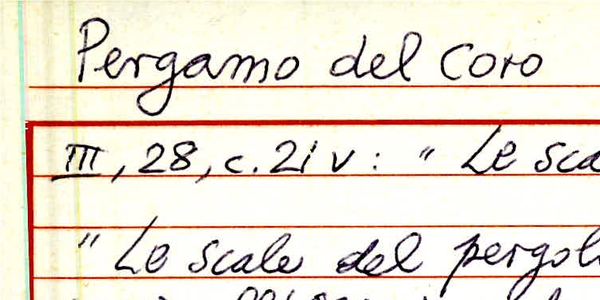 Pergamo del coro
III, 28, c. 21 v : " Le sca
" Le scale del pergol